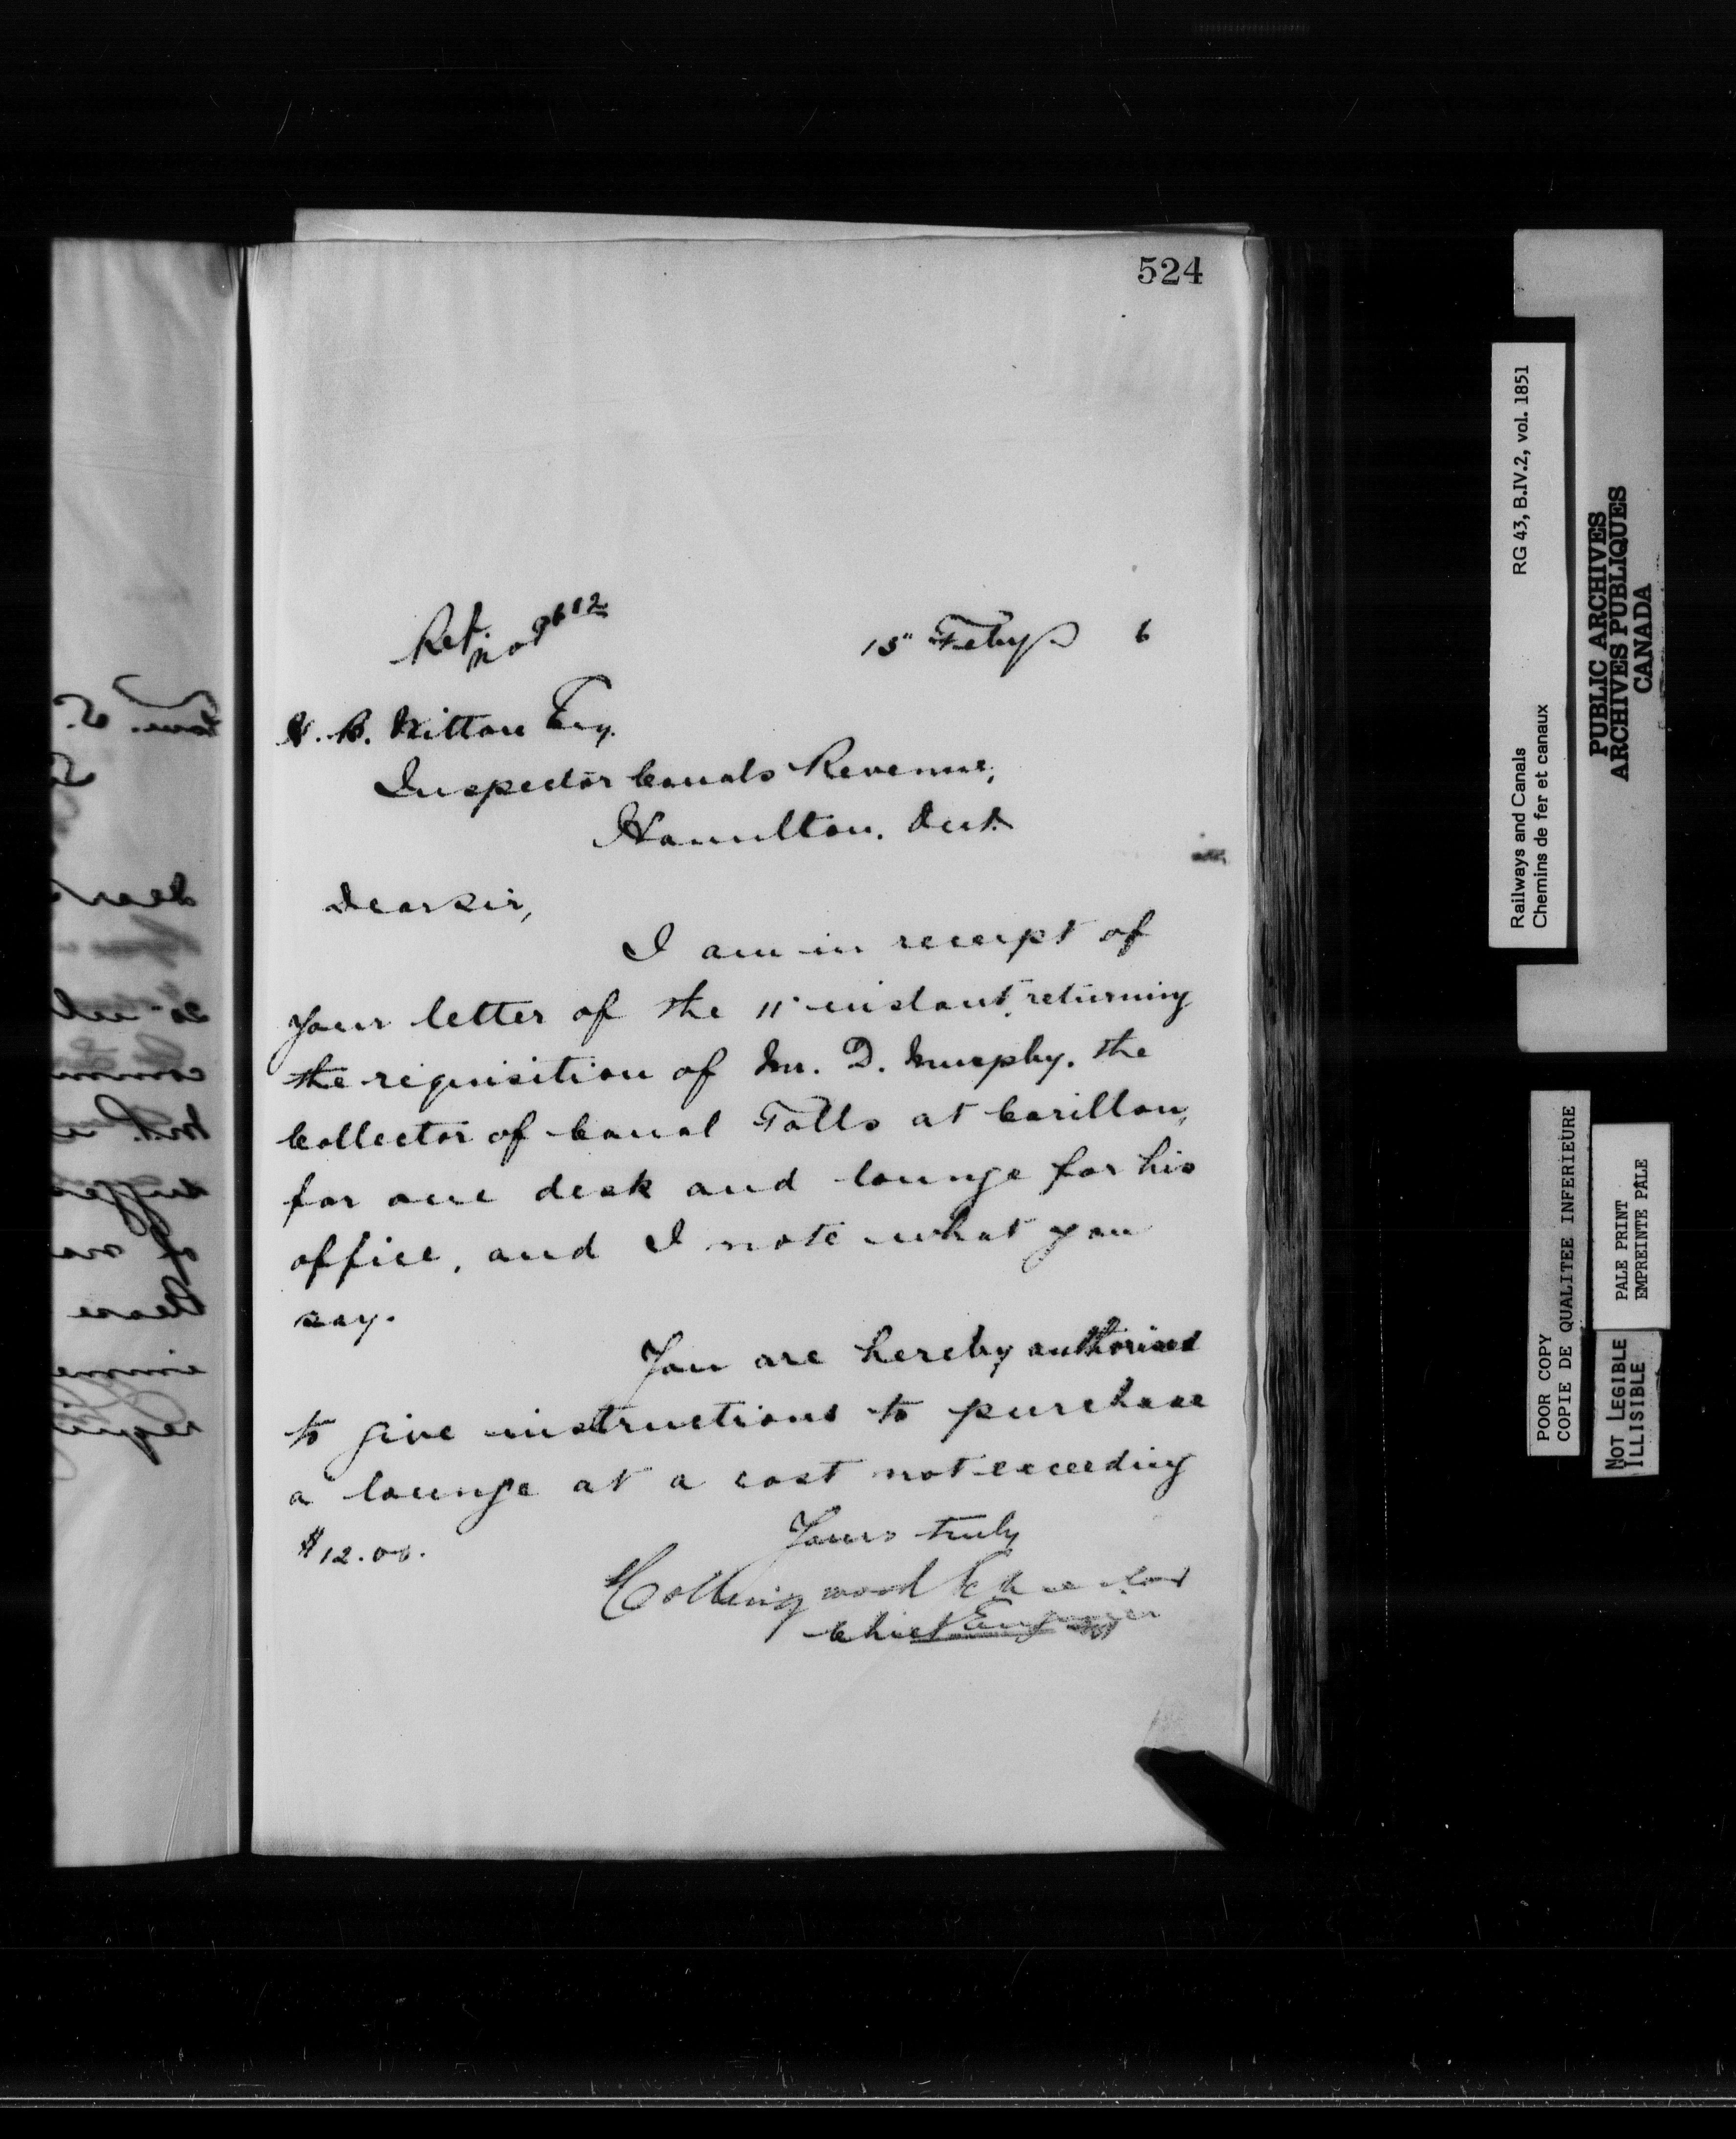 524
Ref. No 9612
15" Feby 6
H. B. Witton Esq.
Inspector Canals Revenue,
Hamilton. Ont.
Dear Sir,
I am in receipt of
your letter of the 11" instant, returning
the requisition of Mr. D. Murphy. the
Collector of Canal Tolls at Carillon,
for one desk and lounge for his
office, and I note what you
say.
You are hereby authorised
to give instructions to purchase
a lounge at a cost not exceeding
$12.00.
Yours truly
Collingwood Schreiber
Chief Engineer
RG 43, B.IV.2, vol. 1851
Railways and Canals
Chemins de fer et canaux
PUBLIC ARCHIVES
ARCHIVES PUBLIQUES
CANADA
POOR COPY
COPIE DE QUALITEE INFERIEURE
PALE PRINT
EMPREINTE PALE
NOT LEGIBLE
ILLISIBLE